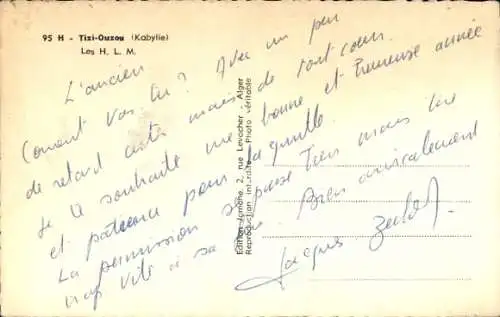 95 H - Tizi-Ouzou (Kabylie)
Les H. L. M.
L'ancien
Coment vas tu? Avec un peu
de retard certes mais de tout coeur
je te souhaite une bonne et heureuse année
et patience pour la quille.
La permission se passe bien mais
trop vite à sa
Bien amicalement
Jacques
Edition Jomone, 2, rue Levacher - Alger
Reproduction interdite - Photo véritable